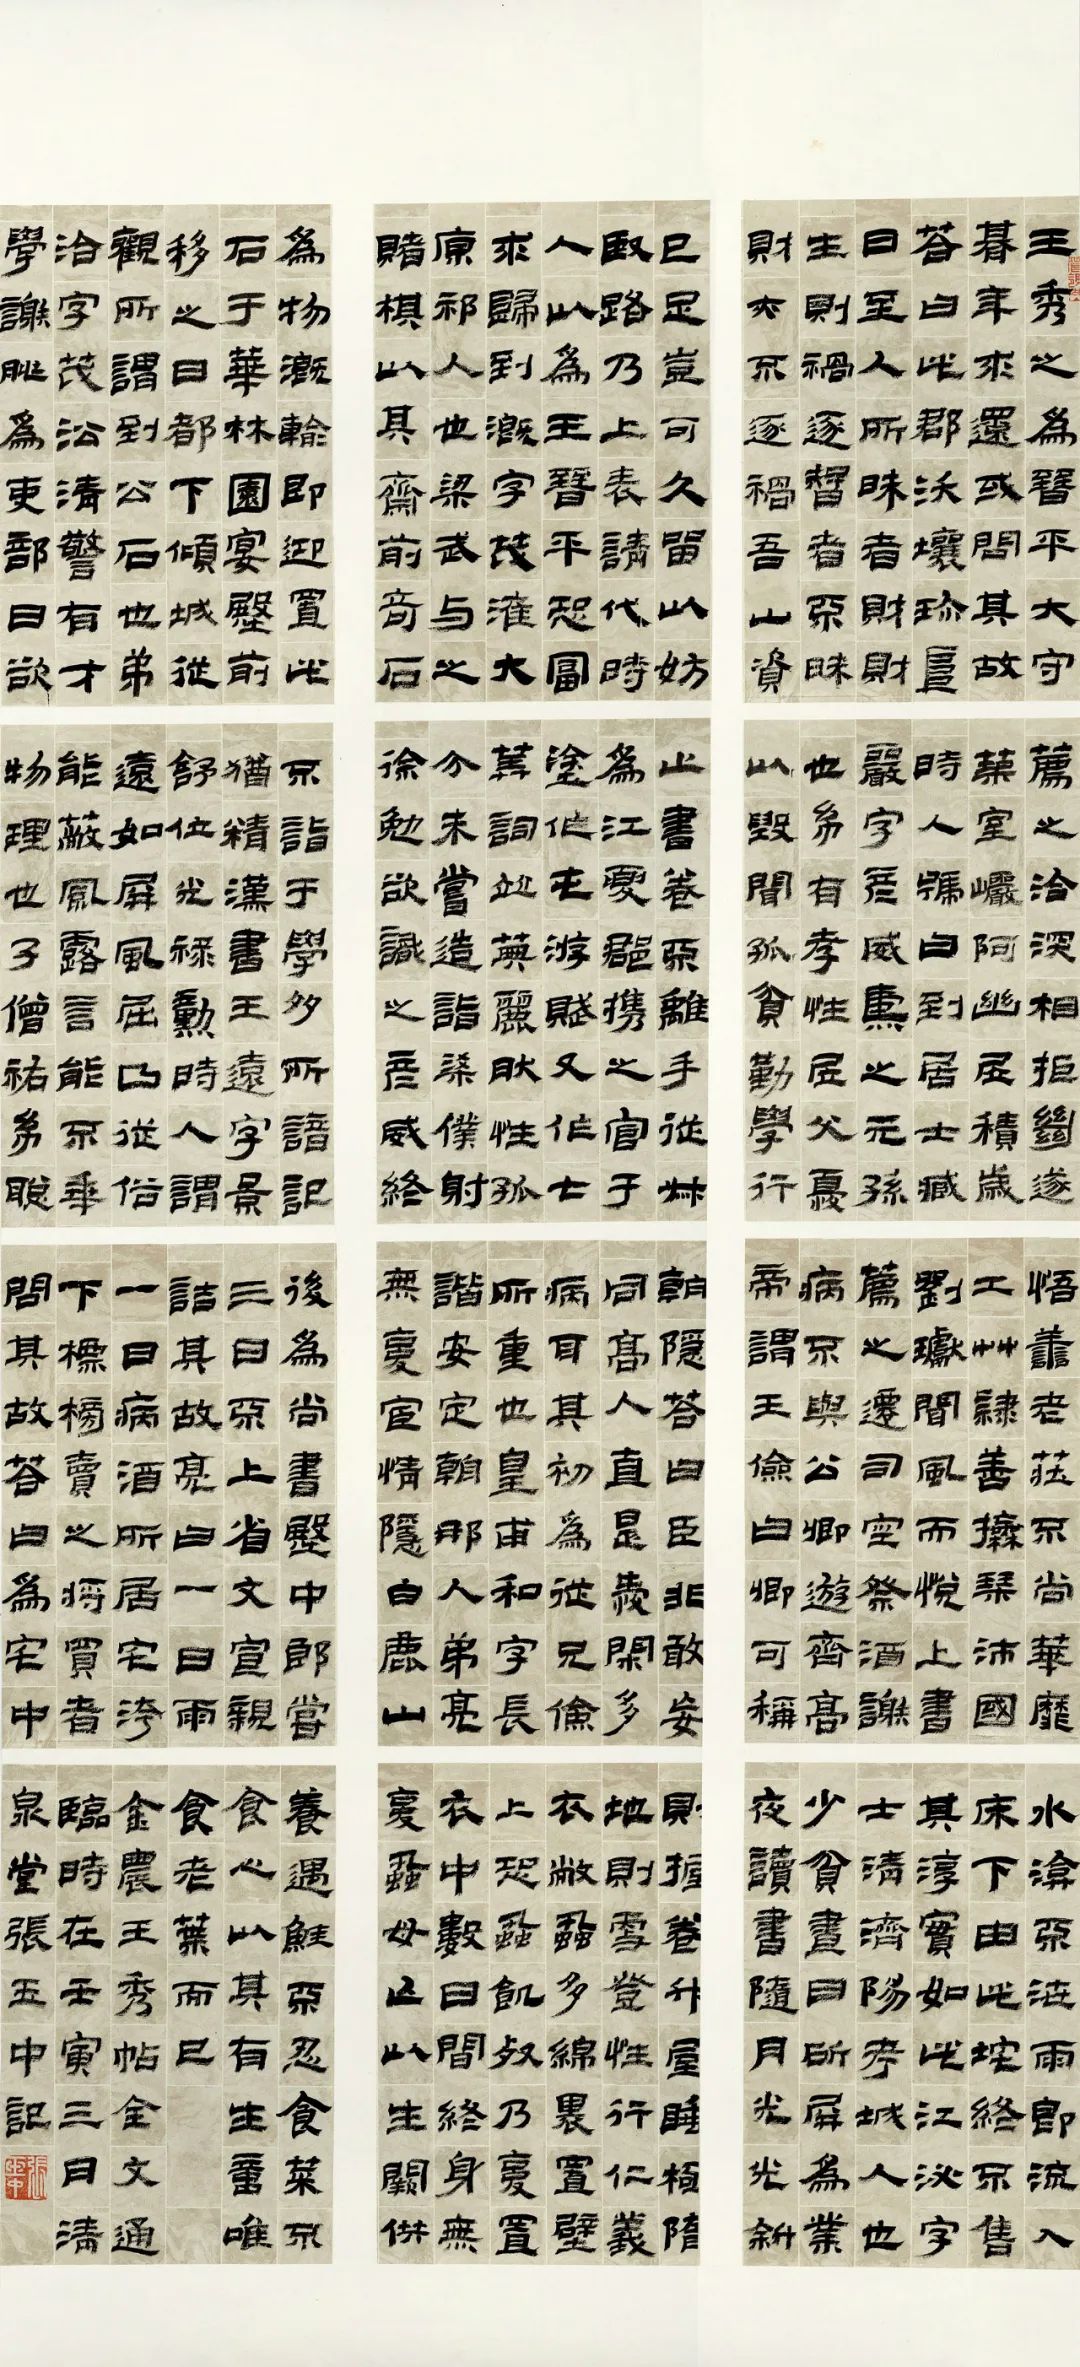 王秀之為晉平大守
朞年求還或問其故
荅曰此郡沃壤珍阜
日至人所昧者財財
生則禍逐智者不昧
財亦不逐禍吾山資
已足豈可久留以妨
賢路乃上表請代時
人以為王晉平恐富
求歸到溉字茂灌大
原祁人也梁武与之
賭棋以其齋前奇石
為物溉輸即迎置此
石于華林園宴殿前
移之日都下傾城從
觀所謂到公石也弟
洽字茂沿清警有才
學謝朓為吏部曰欲
薦之洽深相拒絕遂
築室巖阿幽居積歲
時人號曰到居士臧
嚴字彥威燾之元孫
也幼有孝性居父憂
以毀聞孤貧勤學行
止書卷不離手從叔
為江夏郡携之官于
塗作屯游賦又作七
筭詞並典麗耿性孤
介未嘗造詣梁僕射
徐勉欲識之彥威終
不詣于學多所諳記
猶精漢書王遠字景
舒位光祿勳時人謂
遠如屏風屈曲從俗
能蔽風露言能不乖
物理也子僧祐幼聰
悟老莊不尚華靡
工艸隸善操琴沛國
劉瓛聞風而悅上書
薦之遷司空祭酒謝
病不與公卿遊齊高
帝謂王儉曰卿可稱
朝隱荅曰臣非敢妄
同高人直是愛閑多
病耳其初為從兄儉
所重也皇甫和字長
諧安定朝那人弟亮
無憂宦情隱白鹿山
後為尚書殿中郎嘗
三日不上省文宣親
詰其故亮曰一日雨
一日病酒所居宅洿
下標榜賣之將買者
問其故荅曰為宅中
水渰不泄雨即流入
床下由此宅終不售
其淳實如此江泌字
士清濟陽考城人也
少貧晝日斫屏為業
夜讀書隨月光光斜
則握卷升屋睡極墮
地則登性行仁義
衣敝蝨多綿裹置壁
上恐蝨飢死乃憂置
衣中數日間終身無
憂蝨母亡以生闕供
養遇鮭不忍食菜不
食心以其有生意唯
食老葉而已
金農王秀帖全文通
臨時在壬寅三月清
泉堂張玉中記